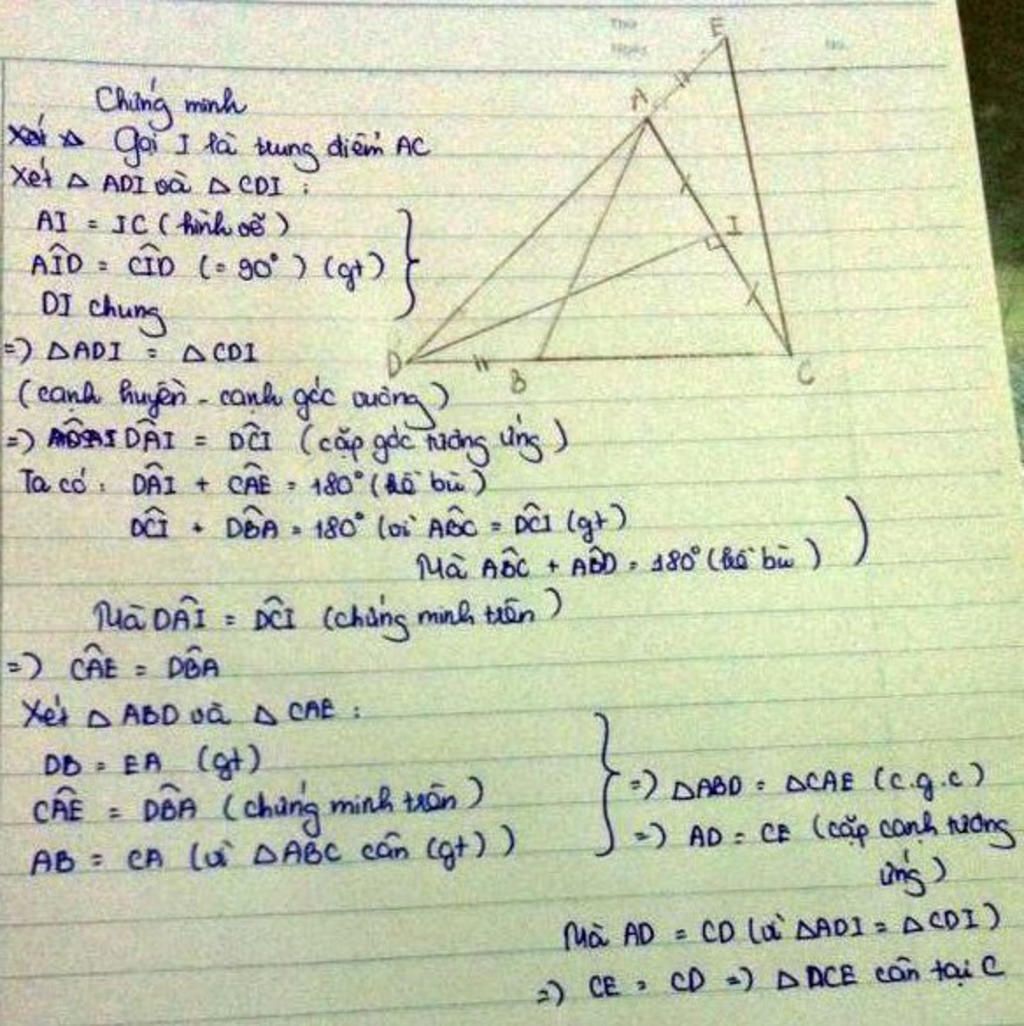 Thứ
Ngày
No.
E
A
I
D
B
C
Chứng minh
Xét △ Gọi I là trung điểm AC
Xét △ ADI và △ CDI :
AI = IC ( hình vẽ )
AÎD = CÎD (= 90° ) (gt)
DI chung
=) △ADI = △CDI
(cạnh huyền - cạnh góc vuông)
=) DÂI = DĈI (cặp góc tương ứng)
Ta có : DÂI + CÂE = 180° (kề bù)
DĈI + DB̂A = 180° (vì AB̂C = DĈI (gt)
Mà AB̂C + AB̂D = 180° (kề bù ) )
Mà DÂI = DĈI (chứng minh trên )
=) CÂE = DB̂A
Xét △ ABD và △ CAE :
DB = EA (gt)
CÂE = DB̂A (chứng minh trên )
AB = CA (vì △ABC cân (gt) )
=) △ABD = △CAE (c.g.c)
=) AD = CE (cặp cạnh tương
ứng )
Mà AD = CD (vì △ADI = △CDI)
=) CE = CD =) △DCE cân tại C